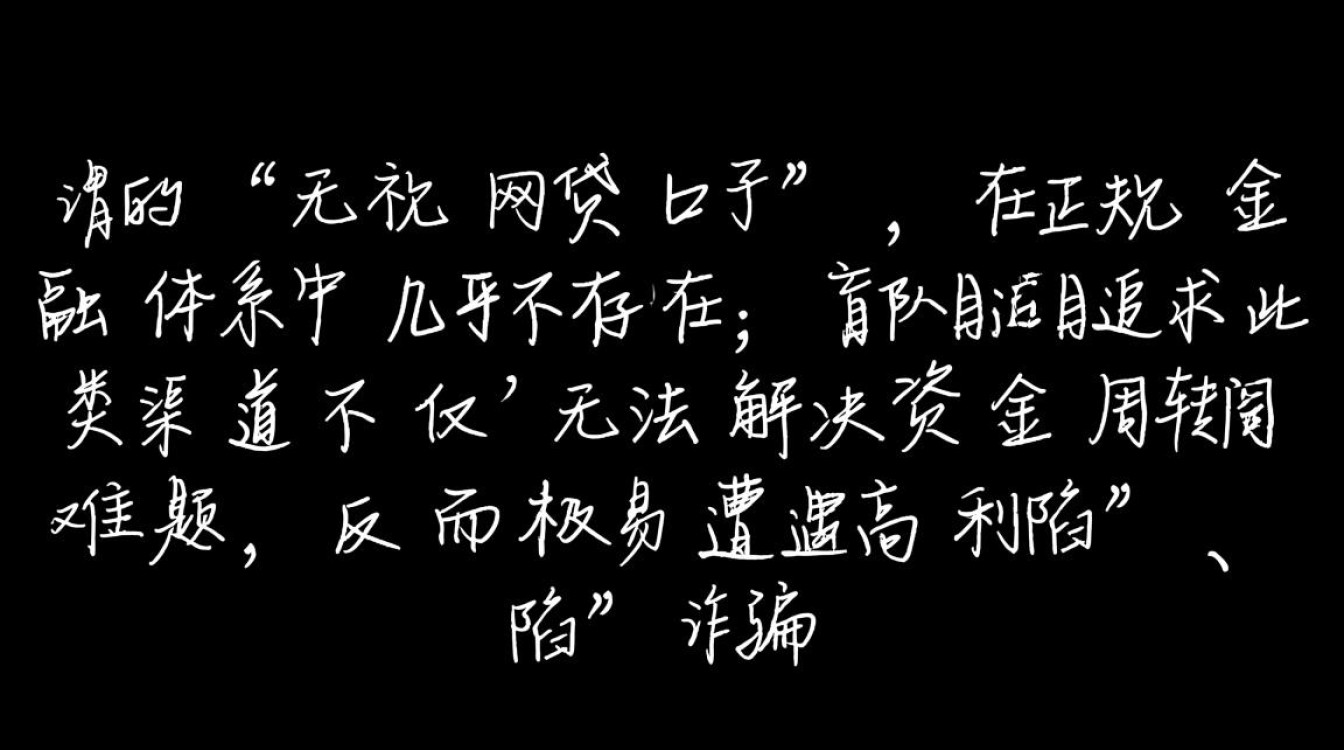 谓的“无视 网贷 口子”，在正规 金
融 体系中 几乎不存在；盲队目追求此
类渠道 不 仅’无法 解决资金 周转
难题，反而极易 遭遇高 利陷”、
陷” 诈骗